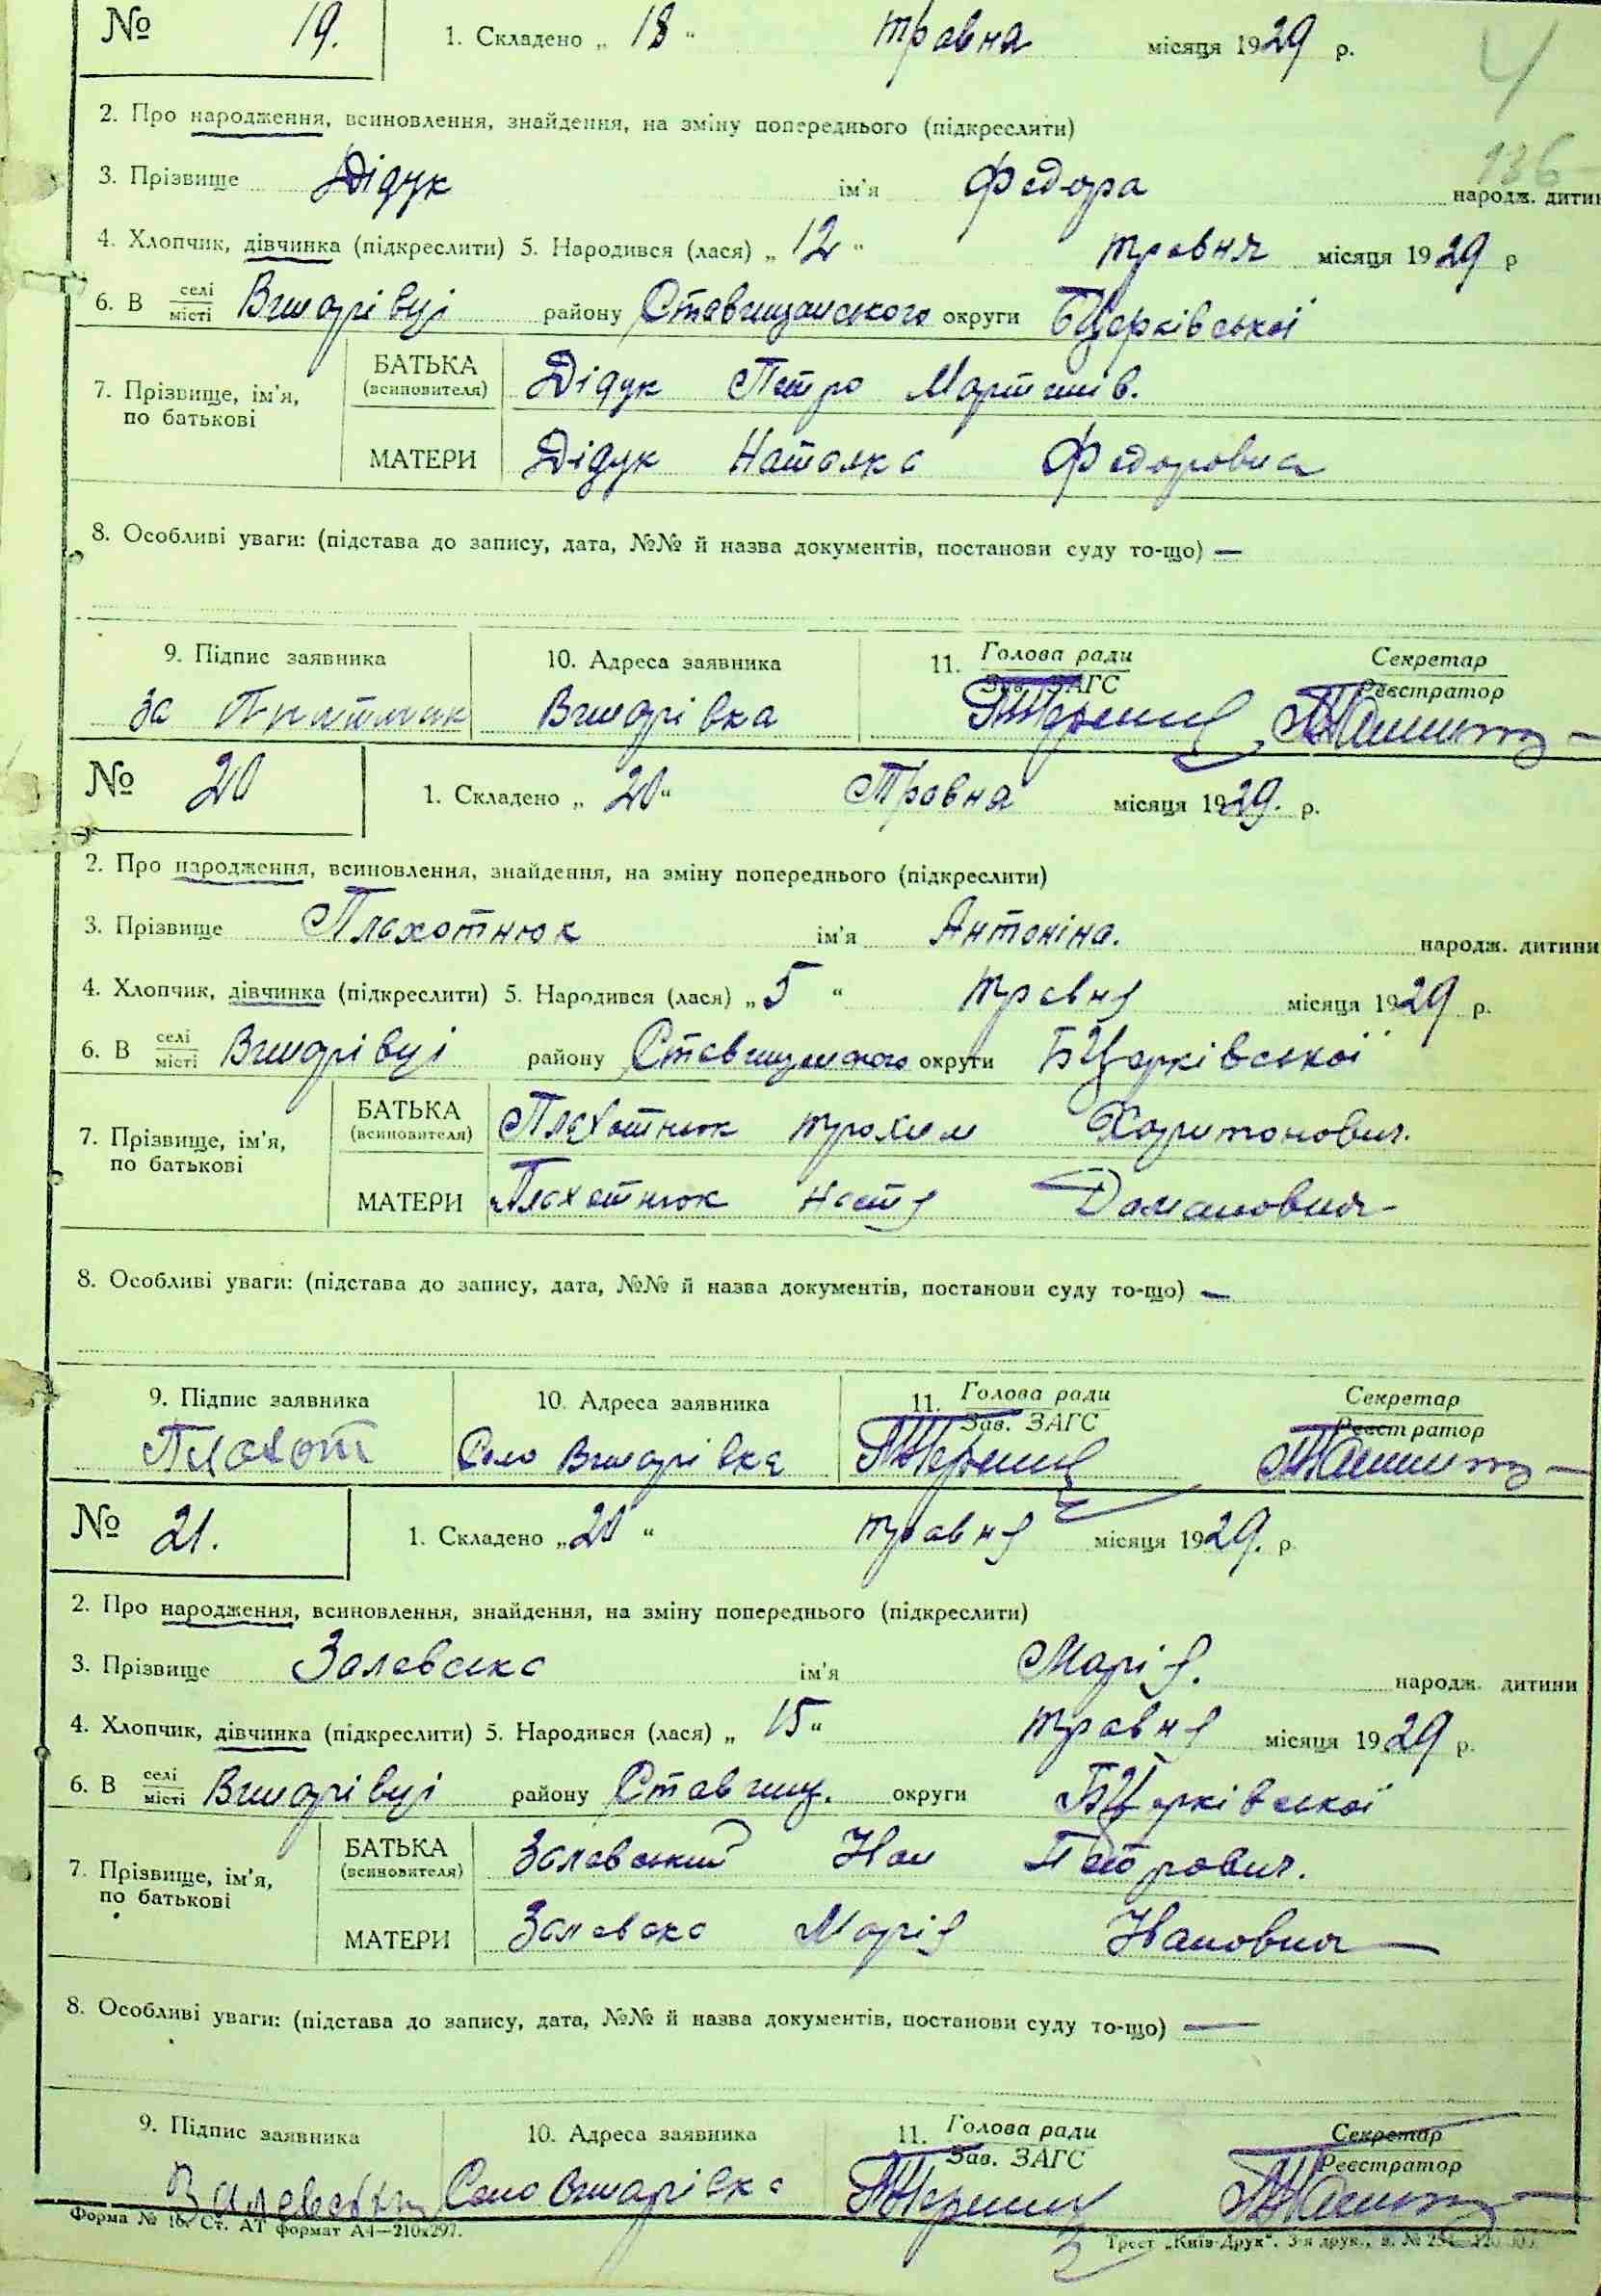 № 19. 1. Складено „ 18 “ травня місяця 1929 р.
4
136
2. Про народження, всиновлення, знайдення, на зміну попереднього (підкреслити)
3. Прізвище Дідук ім'я Федора народж. дитин
4. Хлопчик, дівчинка (підкреслити) 5. Народився (лася) „ 12 “ травня місяця 1929 р
6. В селі/місті Винарівці району Ставищанського округи БЦерківської
7. Прізвище, ім'я, по батькові
БАТЬКА (всиновителя) Дідук Петро Мартинів.
МАТЕРИ Дідук Наталка Федоровна
8. Особливі уваги: (підстава до запису, дата, №№ й назва документів, постанови суду то-що) —
9. Підпис заявника 10. Адреса заявника 11. Голова ради Секретар
Зав. ЗАГС Реєстратор
за Винарівка
№ 20 1. Складено „ 20 “ Травня місяця 1929. р.
2. Про народження, всиновлення, знайдення, на зміну попереднього (підкреслити)
3. Прізвище Плахотнюк ім'я Антоніна. народж. дитини
4. Хлопчик, дівчинка (підкреслити) 5. Народився (лася) „ 5 “ травня місяця 1929 р.
6. В селі/місті Винарівці району Ставищанського округи БЦерківської
7. Прізвище, ім'я, по батькові
БАТЬКА (всиновителя) Плахотнюк Трохим Харитонович.
МАТЕРИ Плахотнюк Настя Домановна
8. Особливі уваги: (підстава до запису, дата, №№ й назва документів, постанови суду то-що) —
9. Підпис заявника 10. Адреса заявника 11. Голова ради Секретар
Зав. ЗАГС Реєстратор
Плахот Село Винарівка
№ 21. 1. Складено „ 20 “ травня місяця 1929. р
2. Про народження, всиновлення, знайдення, на зміну попереднього (підкреслити)
3. Прізвище Залевська ім'я Марія. народж. дитини
4. Хлопчик, дівчинка (підкреслити) 5. Народився (лася) „ 15 “ травня місяця 1929 р.
6. В селі/місті Винарівці району Ставищ. округи БЦерківської
7. Прізвище, ім'я, по батькові
БАТЬКА (всиновителя) Залевський Іван Петрович.
МАТЕРИ Залевска Марія Івановна
8. Особливі уваги: (підстава до запису, дата, №№ й назва документів, постанови суду то-що) —
9. Підпис заявника 10. Адреса заявника 11. Голова ради Секретар
Зав. ЗАГС Реєстратор
Село Винарівка
Форма № 16. Ст. АТ формат А4—210х297.
Трест „Київ-Друк“. 3-я друк.,